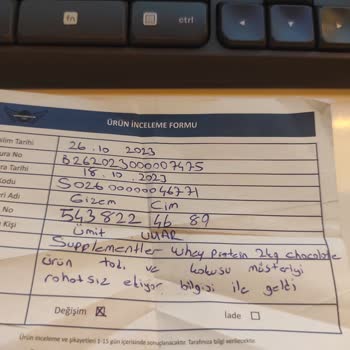 fn
ctrl
ÜRÜN İNCELEME FORMU
slim Tarihi 26.10.2023
ura No B262023000007475
ra Tarihi 18.10.2023
Kodu S02600000046771
eri Adı Gizem Cim
No 543822 46 89
Kişi Ümit UÇAR
Supplementler whey protein 2kg chocolate
ürün tadı ve kokusu müşteriyi
rahatsız ediyor bilgisi ile geldi
Değişim ☒ İade ☐
Ürün inceleme ve şikayetleri 1-15 gün içerisinde sonuçlanacaktır. Tarafınıza bilgi verilecektir.